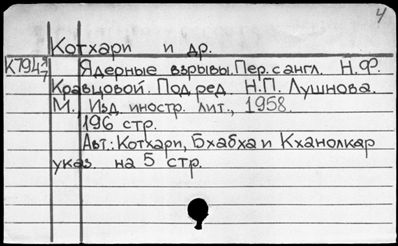 4
Котхари и др.
К794 Ядерные взрывы. Пер. с англ. Н.Ф.
Кравцовой. Под ред. Н.П. Лушнова.
М., Изд. иностр. лит., 1958.
196 стр.
Авт.: Котхари, Бхабха и Кханолкар
указ. на 5 стр.